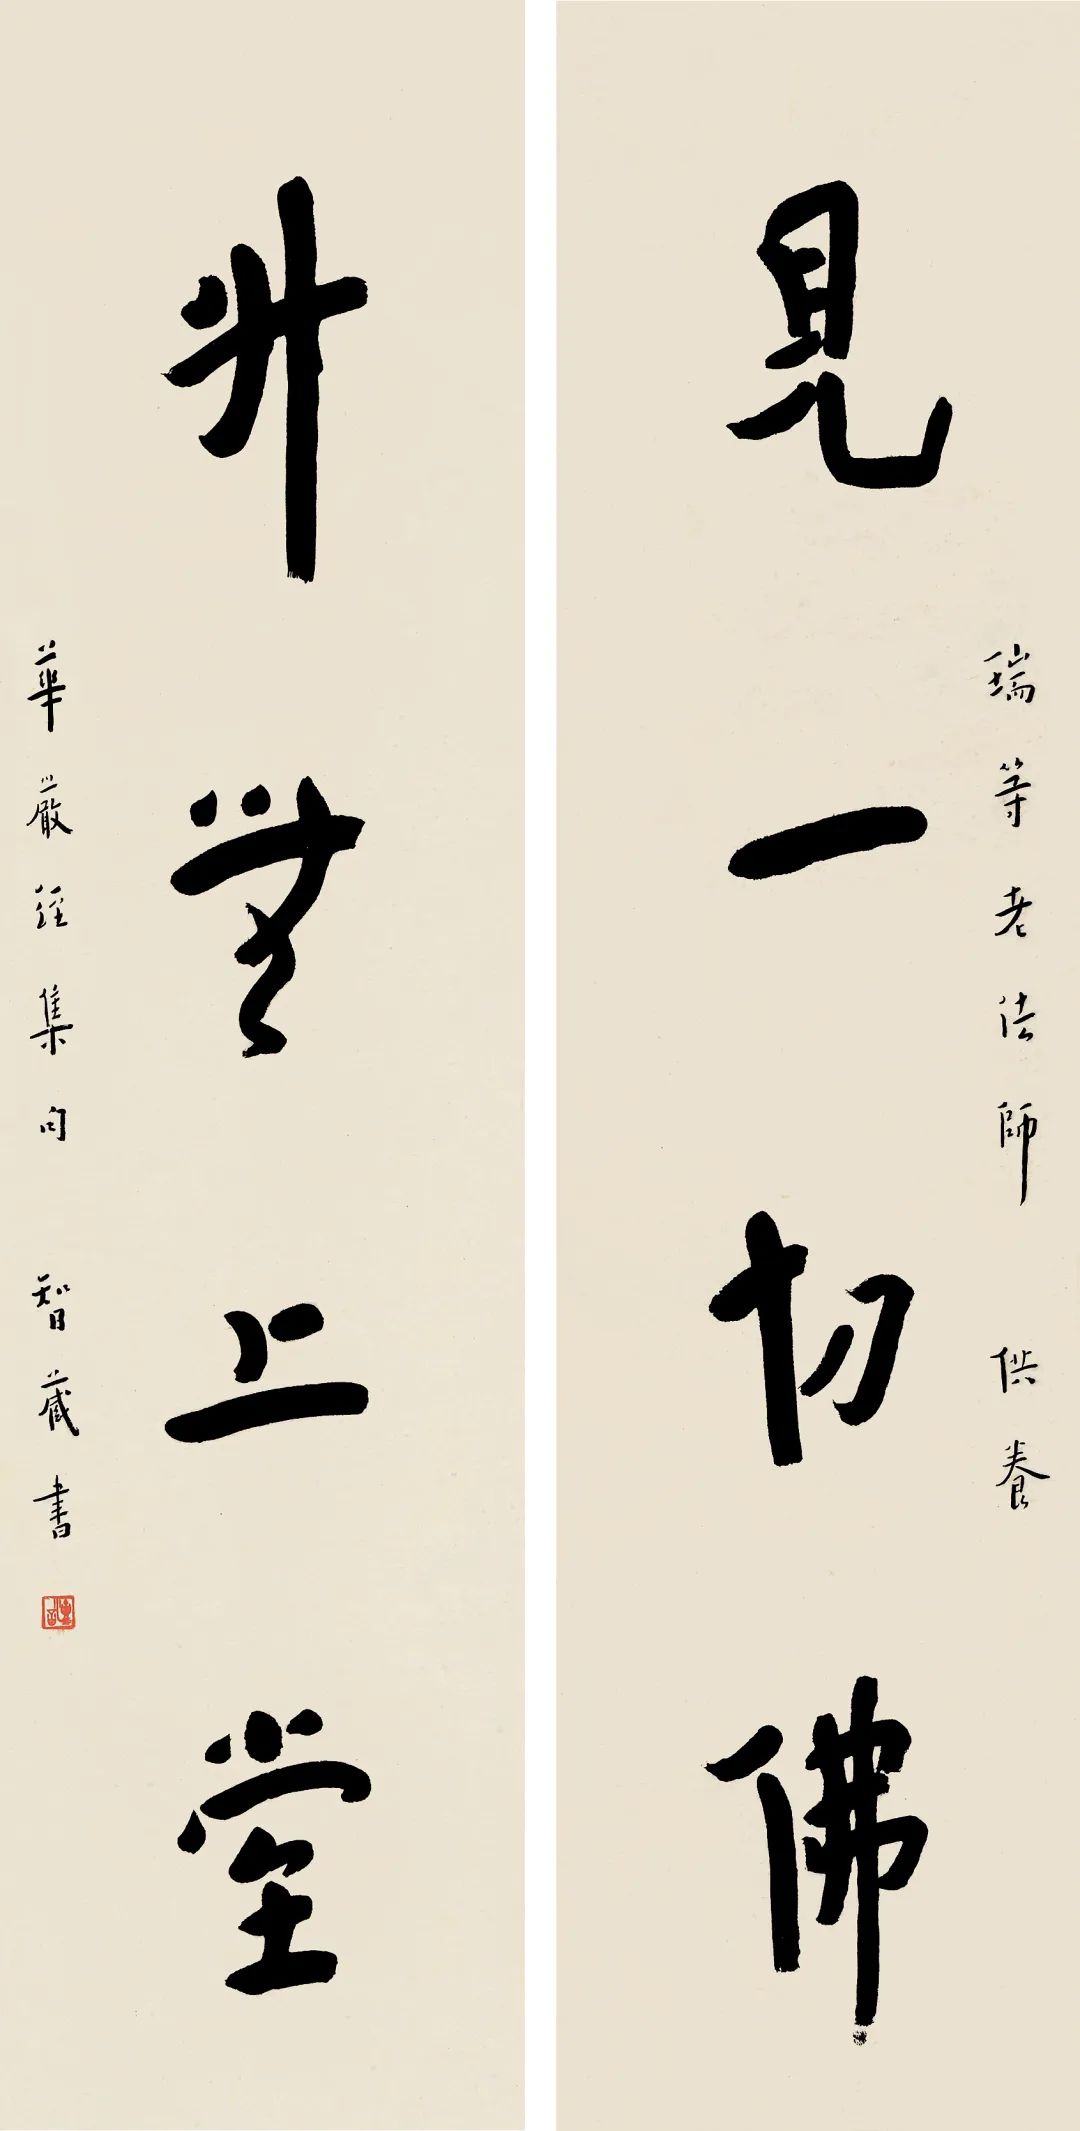 瑞等老法師 供養
見一切佛
升無上堂
華嚴經集句 智藏書